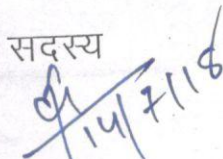 सदस्य
14/7/18